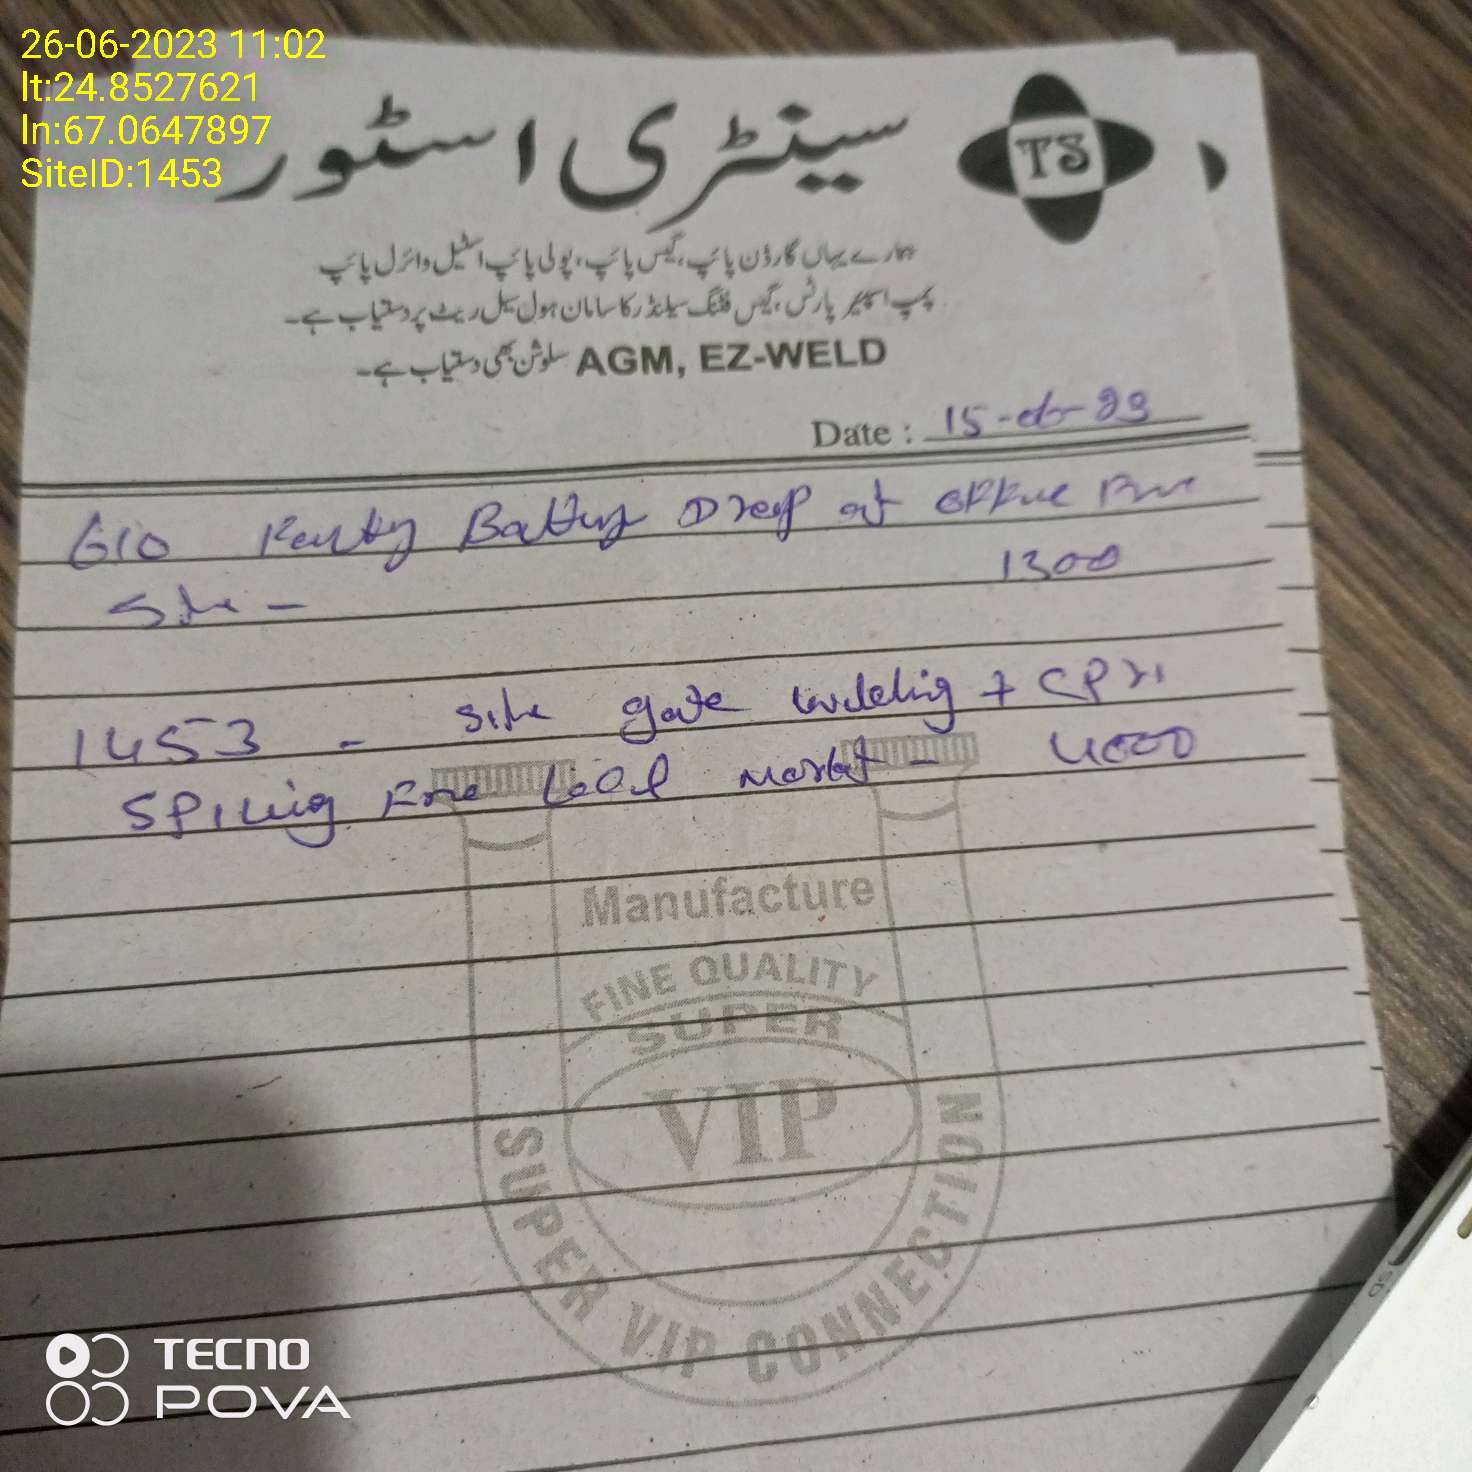 26-06-2023 11:02
lt:24.8527621
ln:67.0647897
SiteID:1453
سینٹری اسٹور
TS
ہمارے یہاں گارڈن پائپ، گیس پائپ، پولی پائپ اسٹیل وائرل پائپ
پمپ اسپیئر پارٹس، گیس فٹنگ سیلنڈر کا سامان ہول سیل ریٹ پر دستیاب ہے۔
AGM, EZ-WELD سلوشن بھی دستیاب ہے۔
Date : 15-06-23
610 Faulty Battery Drop at office
Site - 1300
1453 - Site gate welding + CPRI
Splicing From local market - 4000
Manufacture
FINE QUALITY
SUPER
VIP
SUPER VIP CONNECTION
TECNO
POVA